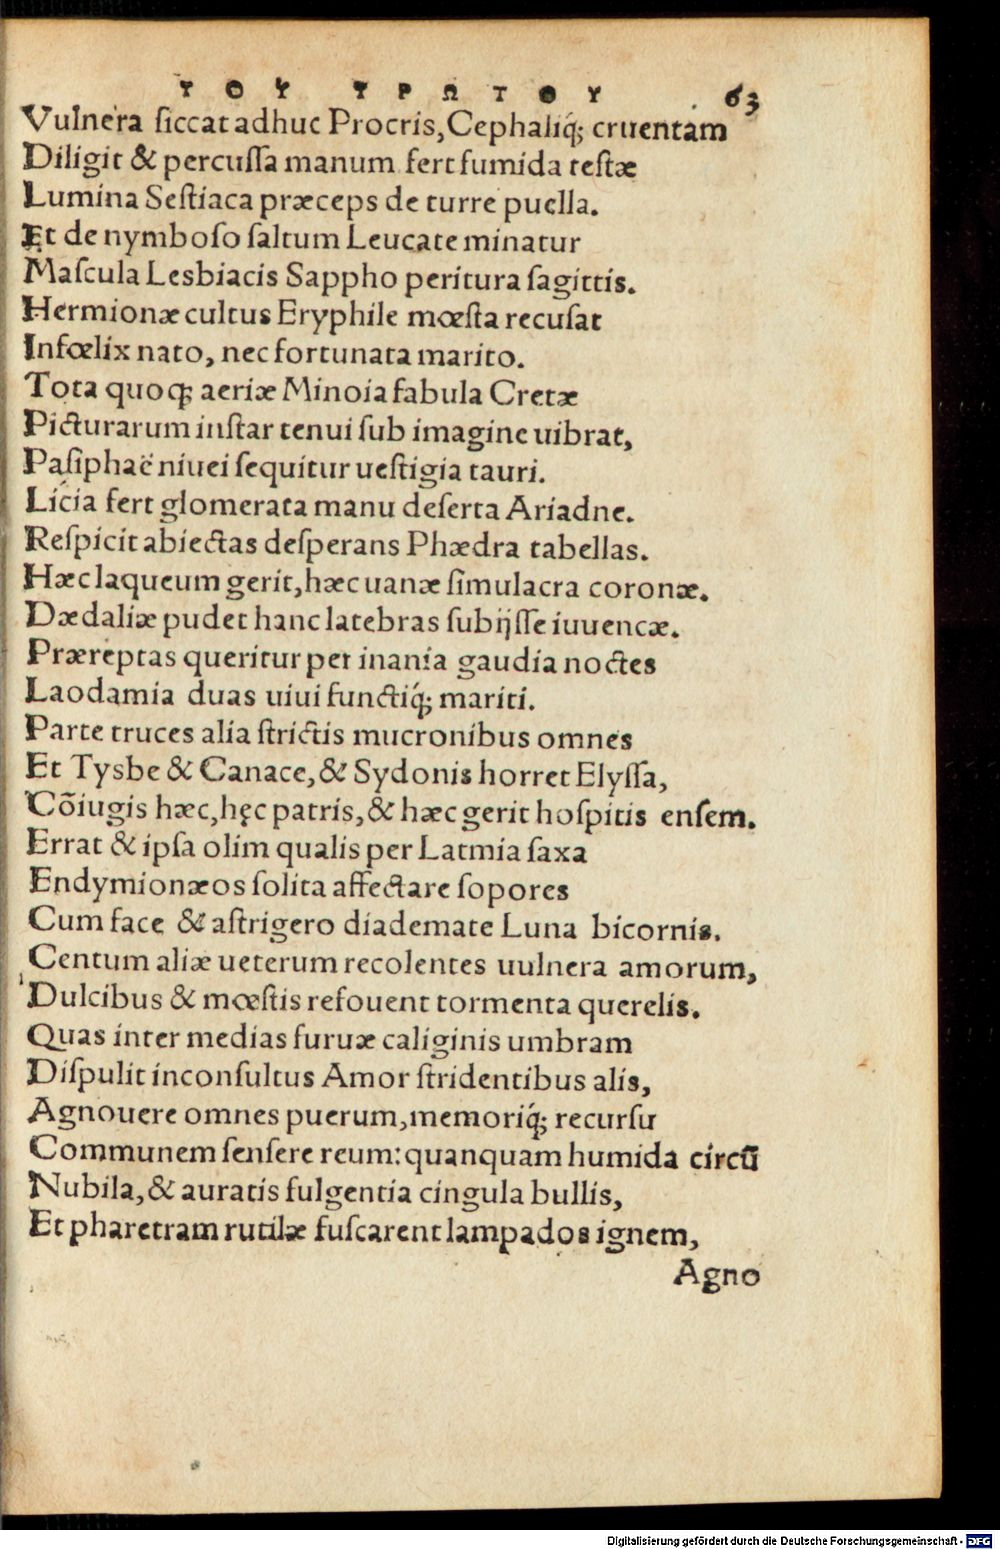 ΤΟΥ ΤΡΩΤΟΥ 63
Vulnera ſiccat adhuc Procris, Cephaliq́; cruentam
Diligit & percuſſa manum fert fumida teſtæ
Lumina Seſtiaca præceps de turre puella.
Et de nymboſo ſaltum Leucate minatur
Maſcula Lesbiacis Sappho peritura ſagittis.
Hermionæ cultus Eryphile mœſta recuſat
Infœlix nato, nec fortunata marito.
Tota quoq; aeriæ Minoia fabula Cretæ
Picturarum inſtar tenui ſub imagine uibrat,
Paſiphaë niuei ſequitur ueſtigia tauri.
Licia fert glomerata manu deſerta Ariadne.
Reſpicit abiectas deſperans Phædra tabellas.
Hæc laqueum gerit, hæc uanæ ſimulacra coronæ.
Dædaliæ pudet hanc latebras ſubijſſe iuuencæ.
Præreptas queritur per inania gaudia noctes
Laodamia duas uiui functiq́; mariti.
Parte truces alia ſtrictis mucronibus omnes
Et Tysbe & Canace, & Sydonis horret Elyſſa,
Cõiugis hæc, hęc patris, & hæc gerit hoſpitis enſem.
Errat & ipſa olim qualis per Latmia ſaxa
Endymionæos ſolita affectare ſopores
Cum face & aſtrigero diademate Luna bicornis.
Centum aliæ ueterum recolentes uulnera amorum,
Dulcibus & mœſtis refouent tormenta querelis.
Quas inter medias furuæ caliginis umbram
Diſpulit inconſultus Amor ſtridentibus alis,
Agnouere omnes puerum, memoriq́; recurſu
Communem ſenſere reum: quanquam humida circũ
Nubila, & auratis fulgentia cingula bullis,
Et pharetram rutilæ fuſcarent lampados ignem,
Agno
Digitalisierung gefördert durch die Deutsche Forschungsgemeinschaft - DFG